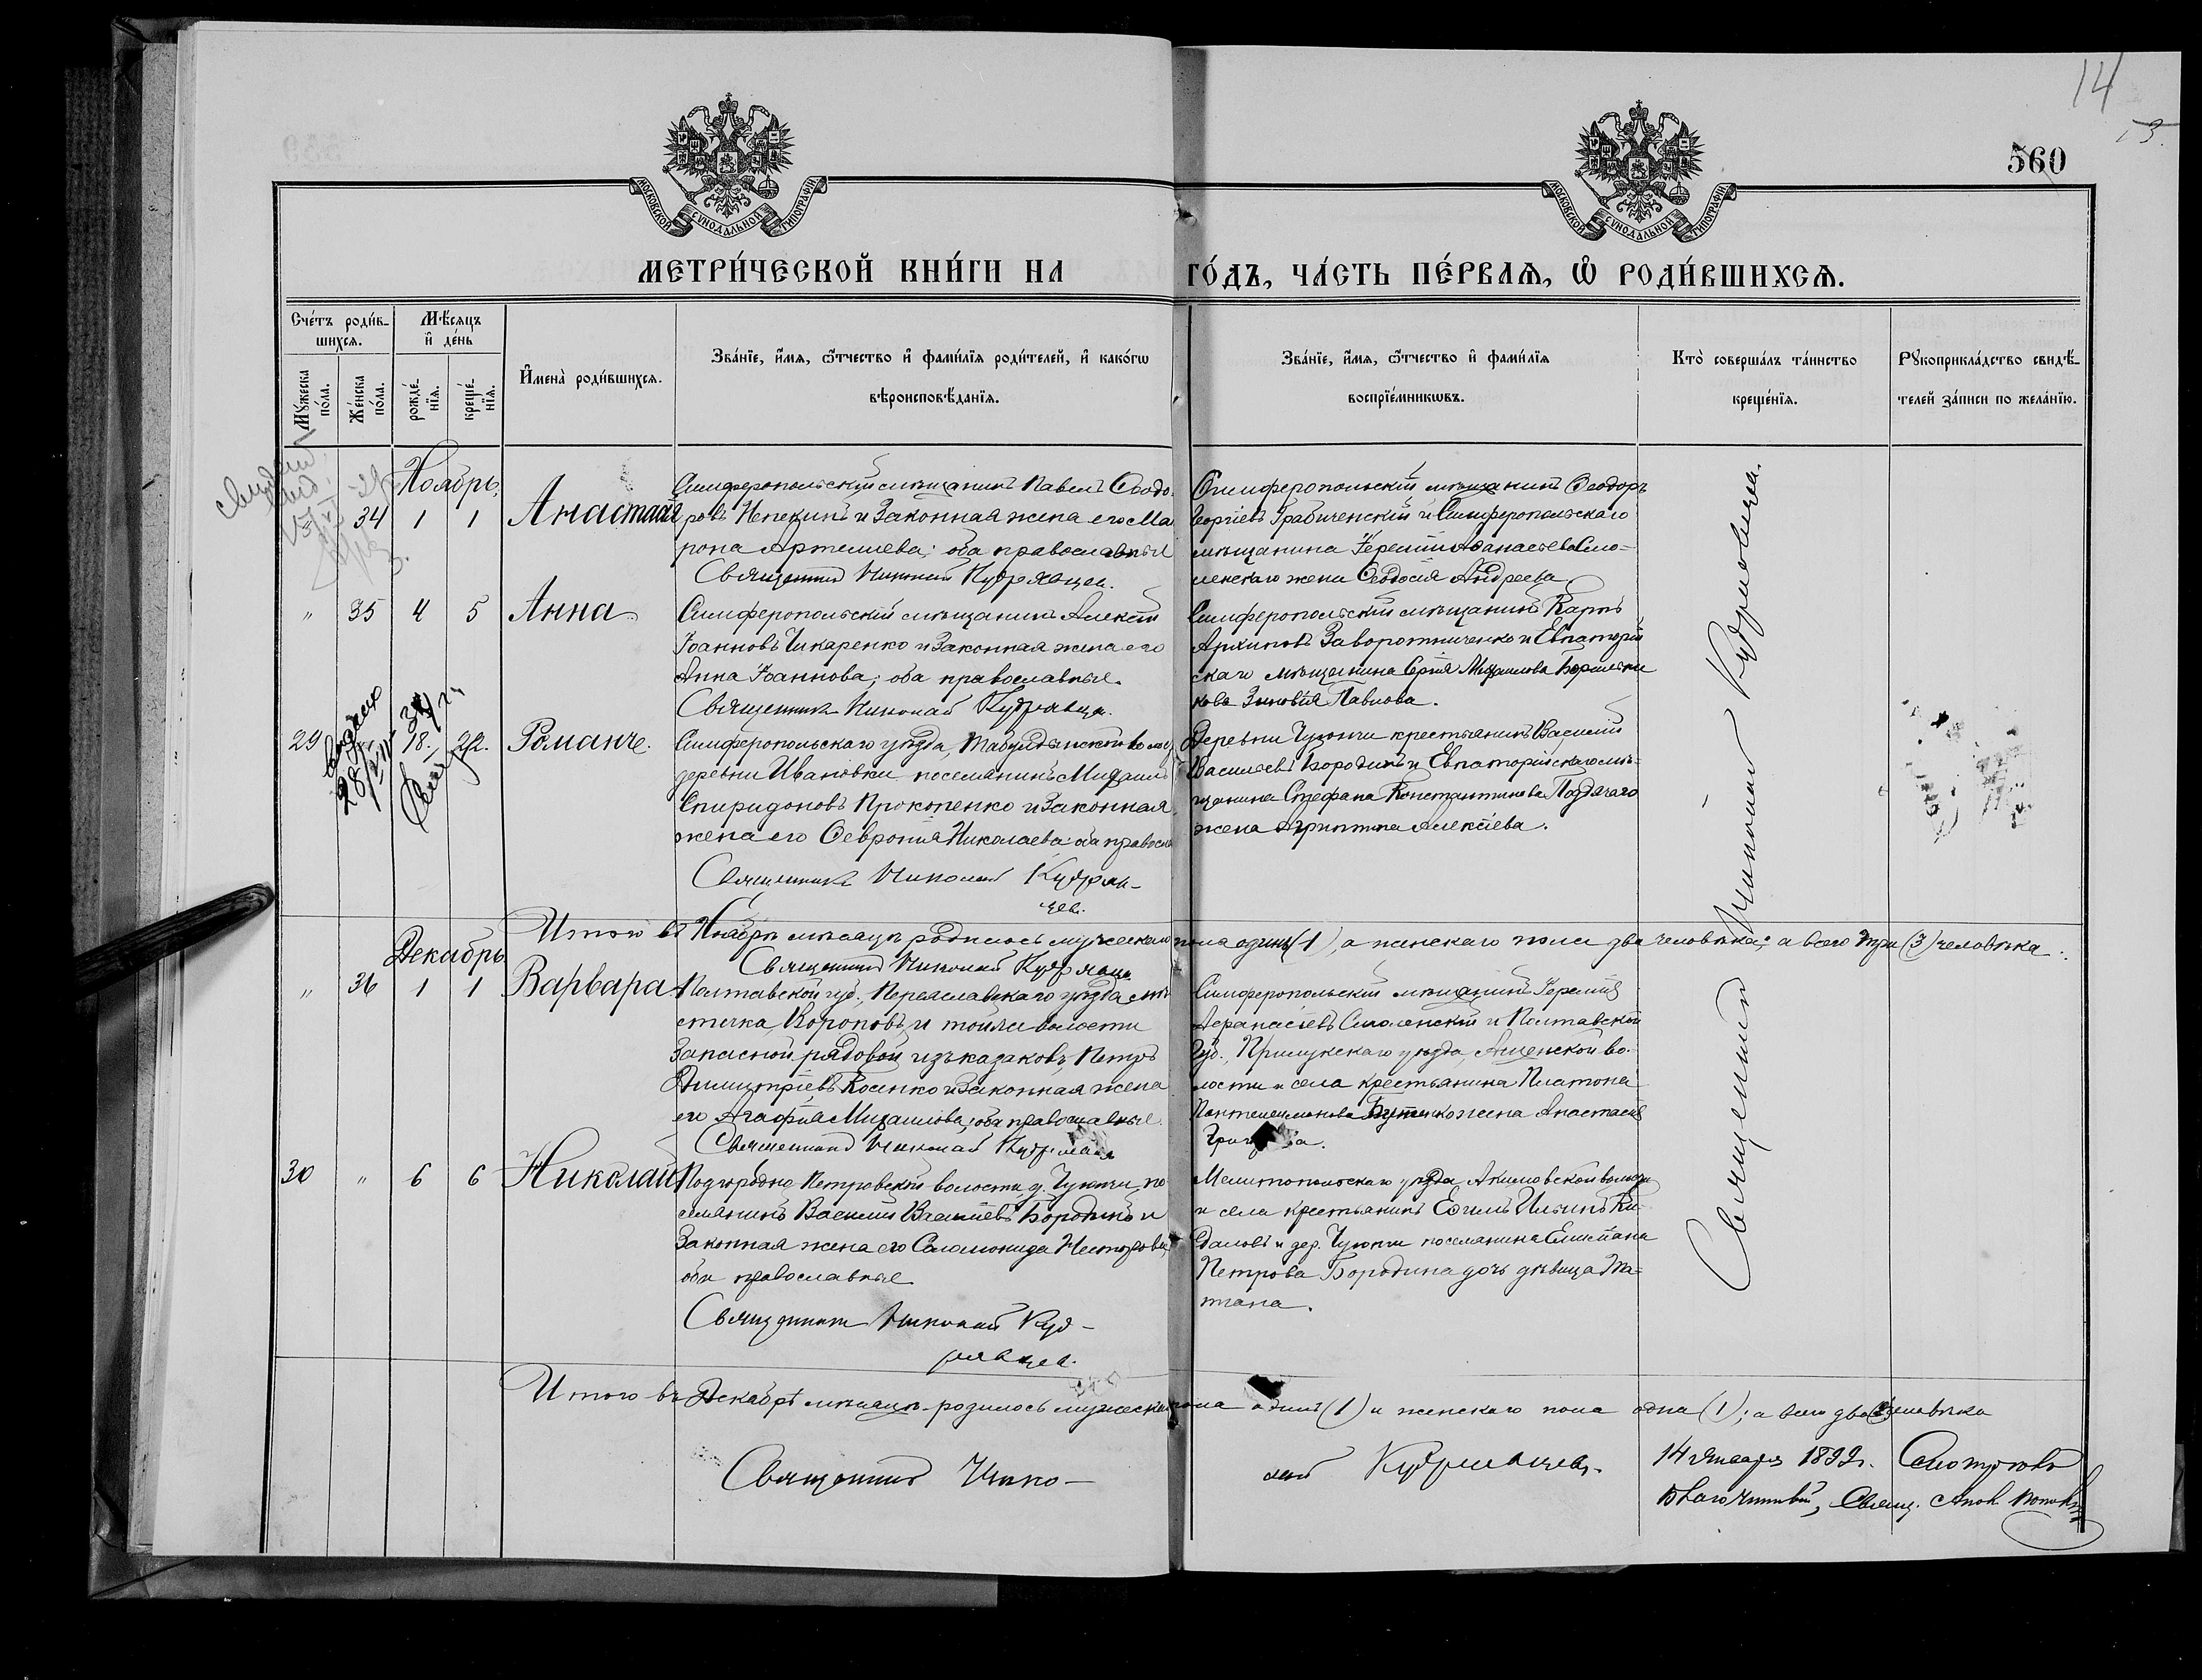 14
13.
560
МОСКОВСКОЙ СѴНОДАЛЬНОЙ ТИПОГРАФІИ
МОСКОВСКОЙ СѴНОДАЛЬНОЙ ТИПОГРАФІИ
МЕТРИ́ЧЕСКОЙ КНИ́ГИ НА ГО́ДЪ, ЧА́СТЬ ПЕ́РВАѦ, Ѡ҆ РОДИ́ВШИХСѦ.
Сче́тъ роди́в-
шихсѧ.
Мѣ́сѧцъ
и҆ де́нь
Мꙋ́жеска
по́ла.
Же́нска
по́ла.
рожде́-
нїѧ.
креще́-
нїѧ.
И҆мена̀ роди́вшихсѧ.
Зва́нїе, и҆́мѧ, ѻ҆́тчество и҆ фами́лїѧ роди́телей, и҆ како́гѡ
вѣроисповѣ́данїѧ.
Зва́нїе, и҆́мѧ, ѻ҆́тчество и҆ фами́лїѧ
воспрїе́мникѡвъ.
Кто̀ соверша́лъ та́инство
креще́нїѧ.
Рꙋкоприкла́дство свидѣ́-
телей за́писи по жела́нїю.
Ноябрь.
34 1 1 Анастасія
Симферопольскій мѣщанинъ Павелъ Ѳеодо-
ровъ и законная жена его Ма
рона Артемиева; оба православные
Священникъ Николай Кудрявцев.
Симферопольскій мѣщанинъ Ѳеодоръ
Георгіевъ Грабиченскій и Симферопольскаго
мѣщанина Іереміи Аѳанасьева Смо-
ленскаго жена Ѳеодосія Андреева
" 35 4 5 Анна
Симферопольскій мѣщанинъ Алексѣй
Іоанновъ Чикаренко и законная жена его
Анна Іоаннова; оба православные.
Священникъ Николай Кудрявцев.
Симферопольскій мѣщанинъ Карпъ
Архиповъ Заворотниченко и Евпаторій
скаго мѣщанина Сергія Михаилова
Зиновія Павлова.
29 18. 22. Романъ.
Симферопольскаго уѣзда,
деревни Ивановки поселянинъ Михаилъ
Спиридоновъ Прокопенко и законная
жена его Ѳевронія Николаева оба правосл
Священникъ Николай Кудряв-
цев.
Деревни Чуюнчи крестьянинъ Василій
Васильевъ Бородинъ и Евпаторійскаго мѣ-
щанина Стефана Константинова
жена Агриппина Алексіева.
Итого въ Ноябрѣ мѣсяцѣ родилось мужескаго пола одинъ (1), а женскаго пола два человѣка; а всего три (3) человѣка.
Священникъ Николай Кудрявцев
Декабрь
" 36 1 1 Варвара
Полтавской губ., Переяславскаго уѣзда мѣ
стечка и той же волости
Запасной рядовой изъ казаковъ, Петръ
Димитріевъ Косенко и законная жена
его Агафія Михаилова; оба православные.
Священникъ Николай Кудрявцев
Симферопольскій мѣщанинъ Іеремія
Аѳанасіевъ Смоленскій и Полтавской
губ., Прилукскаго уѣзда, во-
лости и села крестьянина Платона
Пантелеимонова жена Анастасія
30 " 6 6 Николай
Подгородне Петровской волости, д. Чуюнчи по
селянинъ Василій Васильевъ Бородинъ и
Законная жена его Соломонида Несторова;
оба православные
Священникъ Николай Куд-
рявцев.
Мелитопольскаго уѣзда Акимовской волости
и села крестьянинъ Еѳимъ Ильинъ
и дер. Чуюнчи поселянина
Петрова Бородина дочь дѣвица Та-
тиана.
Священникъ Николай Кудрявцев.
Итого въ Декабрѣ мѣсяцѣ родилось мужеска пола одинъ (1) и женскаго пола одна (1); а всего два (2) человѣка
Священникъ Нико-
лай Кудрявцев.
14 Января 1892 г. Смотрѣлъ
Благочинный, Свящ.